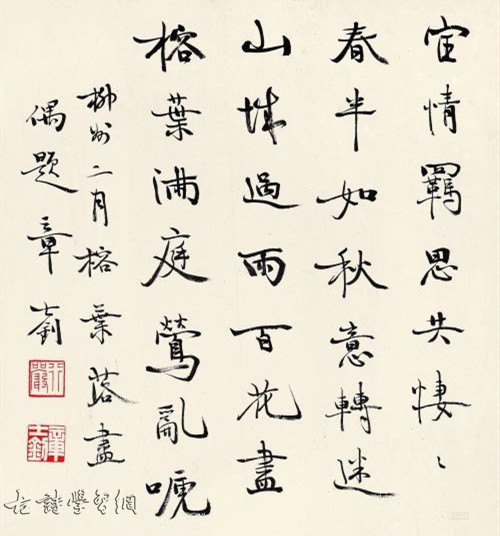 宦情羈思共悽〻
春半如秋意轉迷
山城過雨百花盡
榕葉滿庭鶯亂嗁
柳州二月榕葉落盡
偶題 章士釗
行嚴
章士釗
學習網